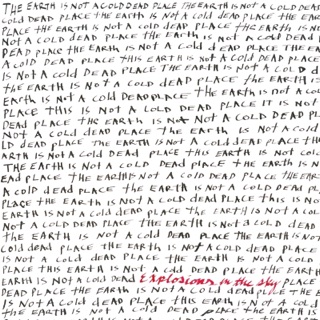 THE EARTH IS NOT A COLD DEAD PLACE THE EARTH IS NOT A COLD DEAD
COLD DEAD PLACE THE EARTH IS NOT A COLD DEAD PLACE THE EAR
PLACE THE EARTH IS NOT A COLD DEAD PLACE THE EARTH IS NO
NOT A COLD DEAD PLACE THE EARTH IS NOT A COLD DEAD P
DEAD PLACE THE EARTH IS NOT A COLD DEAD PLACE THE EA
A COLD DEAD PLACE THIS EARTH IS NOT A COLD DEAD PLACE
IS NOT A COLD DEAD PLACE THE EARTH IS NOT A COLD D
THE EARTH IS NOT A COLD DEAD PLACE THE EARTH IS
EARTH IS NOT A COLD DEAD PLACE THE EARTH IS NOT A COL
PLACE THIS IS NOT A COLD DEAD PLACE IT IS NOT
DEAD PLACE THE EARTH IS NOT A COLD DEAD PL
NOT A COLD DEAD PLACE THE EARTH IS NOT A COLD
LD DEAD PLACE THE EARTH IS NOT A COLD DEAD PLACE TH
ARTH IS NOT A COLD DEAD PLACE THIS EARTH IS NOT COL
THE EARTH IS NOT A COLD DEAD PLACE THE EARTH IS N
EAD PLACE THE EARTH IS NOT A COLD DEAD PLACE THE EAR
A COLD DEAD PLACE THE EARTH IS NOT A COLD DEAD PL
PLACE THE EARTH IS NOT A COLD DEAD PLACE THIS IS NO
EARTH IS NOT A COLD DEAD PLACE THE EARTH IS NOT A COL
NOT A COLD DEAD PLACE THE EARTH IS NOT A COLD DEAD
THE EARTH IS NOT A COLD DEAD PLACE THE EARTH IS NOT
COLD DEAD PLACE THE EARTH IS NOT A COLD DEAD PLACE
IS NOT A COLD DEAD PLACE THE EARTH IS NOT A COLD
PLACE THIS EARTH IS NOT A COLD DEAD PLACE THE EARTH
EARTH IS NOT A COLD DEAD Explosions in the sky PLACE
DEAD PLACE THE EARTH IS NOT A COLD DEAD PLACE THE E
IS NOT A COLD DEAD PLACE THIS EARTH IS NOT A COLD
THE EARTH IS NOT A COLD DEAD PLACE THE EARTH IS N